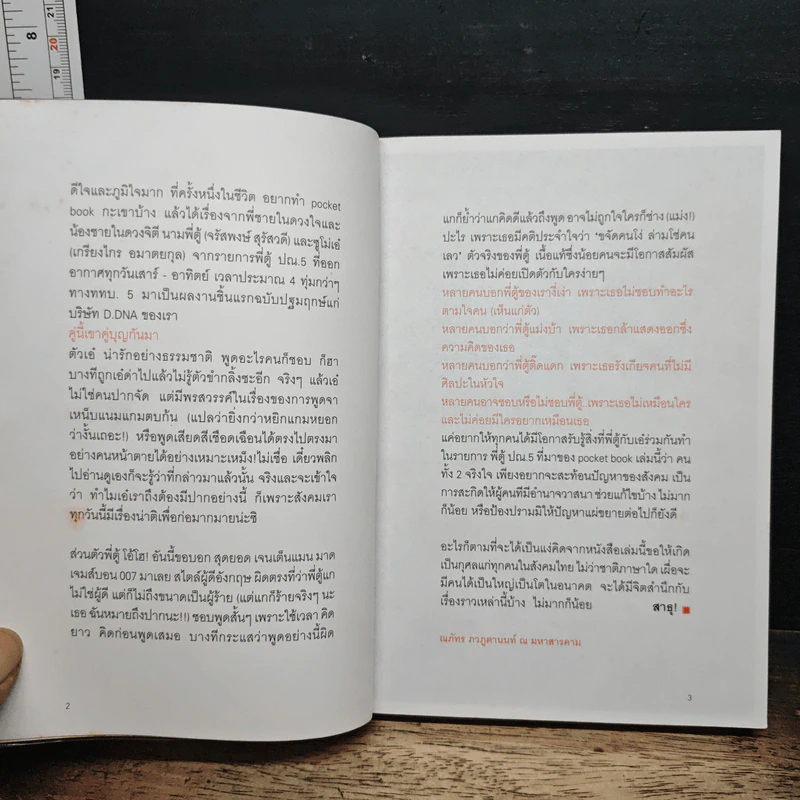 8
20
19
ดีใจและภูมิใจมาก ที่ครั้งหนึ่งในชีวิต อยากทำ pocket
book กะเขาบ้าง แล้วได้เรื่องจากพี่ชายในดวงใจและ
น้องชายในดวงจิตี นามพี่ตู้ (จรัสพงษ์ สุรัสวดี) และซูโม่เอ๋
(เกรียงไกร อมาตยกุล) จากรายการพี่ตู้ ปณ.5 ที่ออก
อากาศทุกวันเสาร์ - อาทิตย์ เวลาประมาณ 4 ทุ่มกว่าๆ
ทางททบ. 5 มาเป็นผลงานชิ้นแรกฉบับปฐมฤกษ์แก่
บริษัท D.DNA ของเรา
คู่นี้เขาคู่บุญกันมา
ตัวเอ๋ น่ารักอย่างธรรมชาติ พูดอะไรคนก็ชอบ ก็ฮา
บางทีถูกเอ๋ด่าไปแล้วไม่รู้ตัวขำกลิ้งซะอีก จริงๆ แล้วเอ๋
ไม่ใช่คนปากจัด แต่มีพรสวรรค์ในเรื่องของการพูดจา
เหน็บแนมแกมตบก้น (แปลว่ายิ่งกว่าหยิกแกมหยอก
ว่างั้นเถอะ!) หรือพูดเสียดสีเชือดเฉือนได้ตรงไปตรงมา
อย่างคนหน้าตายได้อย่างเหมาะเหม็ง!ไม่เชื่อ เดี๋ยวพลิก
ไปอ่านดูเองก็จะรู้ว่าที่กล่าวมาแล้วนั้น จริงและจะเข้าใจ
ว่า ทำไมเอ๋เราถึงต้องมีปากอย่างนี้ ก็เพราะสังคมเรา
ทุกวันนี้มีเรื่องน่าติเพื่อก่อมากมายน่ะซิ
ส่วนตัวพี่ตู้ โอ้โฮ! อันนี้ขอบอก สุดยอด เจนเต็นแมน มาด
เจมส์บอน 007 มาเลย สไตล์ผู้ดีอังกฤษ ผิดตรงที่ว่าพี่ตู้แก
ไม่ใช่ผู้ดี แต่ก็ไม่ถึงขนาดเป็นผู้ร้าย (แต่แกก็ร้ายจริงๆ นะ
เธอ ฉันหมายถึงปากนะ!!) ชอบพูดสั้นๆ เพราะใช้เวลา คิด
ยาว คิดก่อนพูดเสมอ บางทีกระแสว่าพูดอย่างนี้ผิด
2
แกก็ย้ำว่าแกคิดดีแล้วถึงพูด อาจไม่ถูกใจใครก็ช่าง (แม่ง!)
ปะไร เพราะเธอมีคติประจำใจว่า 'ขจัดคนโง่ ล่ามโซ่คน
เลว' ตัวจริงของพี่ตู้ เนื้อแท้ซึ่งน้อยคนจะมีโอกาสสัมผัส
เพราะเธอไม่ค่อยเปิดตัวกับใครง่ายๆ
หลายคนบอกพี่ตู้ของเรางี่เง่า เพราะเธอไม่ชอบทำอะไร
ตามใจคน (เห็นแก่ตัว)
หลายคนบอกว่าพี่ตู้แม่งบ้า เพราะเธอกล้าแสดงออกซึ่ง
ความคิดของเธอ
หลายคนบอกว่าพี่ตู้ติ๊ดแตก เพราะเธอรังเกียจคนที่ไม่มี
ศิลปะในหัวใจ
หลายคนอาจชอบหรือไม่ชอบพี่ตู้..เพราะเธอไม่เหมือนใคร
และไม่ค่อยมีใครอยากเหมือนเธอ
แค่อยากให้ทุกคนได้มีโอกาสรับรู้สิ่งที่พี่ตู้กับเอ๋ร่วมกันทำ
ในรายการ พี่ตู้ ปณ.5 ที่มาของ pocket book เล่มนี้ว่า คน
ทั้ง 2 จริงใจ เพียงอยากจะสะท้อนปัญหาของสังคม เป็น
การสะกิดให้ผู้คนที่มีอำนาจวาสนา ช่วยแก้ไขบ้าง ไม่มาก
ก็น้อย หรือป้องปรามมิให้ปัญหาแผ่ขยายต่อไปก็ยังดี
อะไรก็ตามที่จะได้เป็นแง่คิดจากหนังสือเล่มนี้ขอให้เกิด
เป็นกุศลแก่ทุกคนในสังคมไทย ไม่ว่าชาติภาษาใด เผื่อจะ
มีคนได้เป็นใหญ่เป็นโตในอนาคต จะได้มีจิตสำนึกกับ
เรื่องราวเหล่านี้บ้าง ไม่มากก็น้อย สาธุ!
ณภัทร ภวภูตานนท์ ณ มหาสารคาม
3